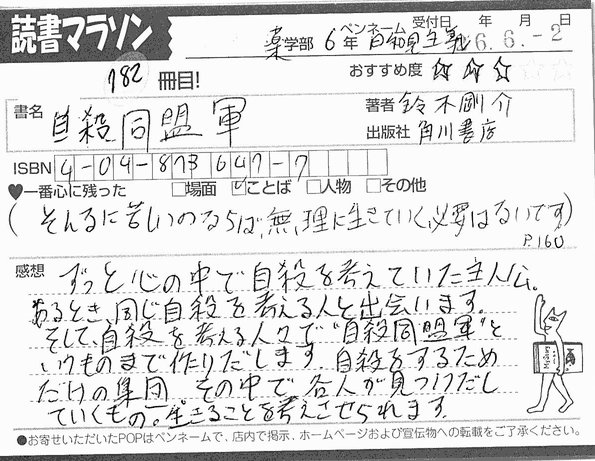 読書マラソン
182 冊目!
薬学部 6年
ペンネーム 自和見主義
受付日 年 月 日
6.6.-2
おすすめ度 ☆ ☆ ☆
書名 自殺同盟軍
著者 鈴木剛介
出版社 角川書店
ISBN 4-04-873647-7
♥一番心に残った □場面 ☑ことば □人物 □その他
(そんなに苦しいのならば、無理に生きていく必要はないです)
P.160
感想 ずっと心の中で自殺を考えていた主人公。
あるとき、同じ自殺を考える人と出会います。
そして、自殺を考える人々で“自殺同盟軍”と
いうものまで作りだします。自殺をするため
だけの集団。その中で各人が見つけだし
ていくもの。生きることを考えさせられます。
●お寄せいただいたPOPはペンネームで、店内で掲示、ホームページおよび宣伝物への転載をご了承ください。